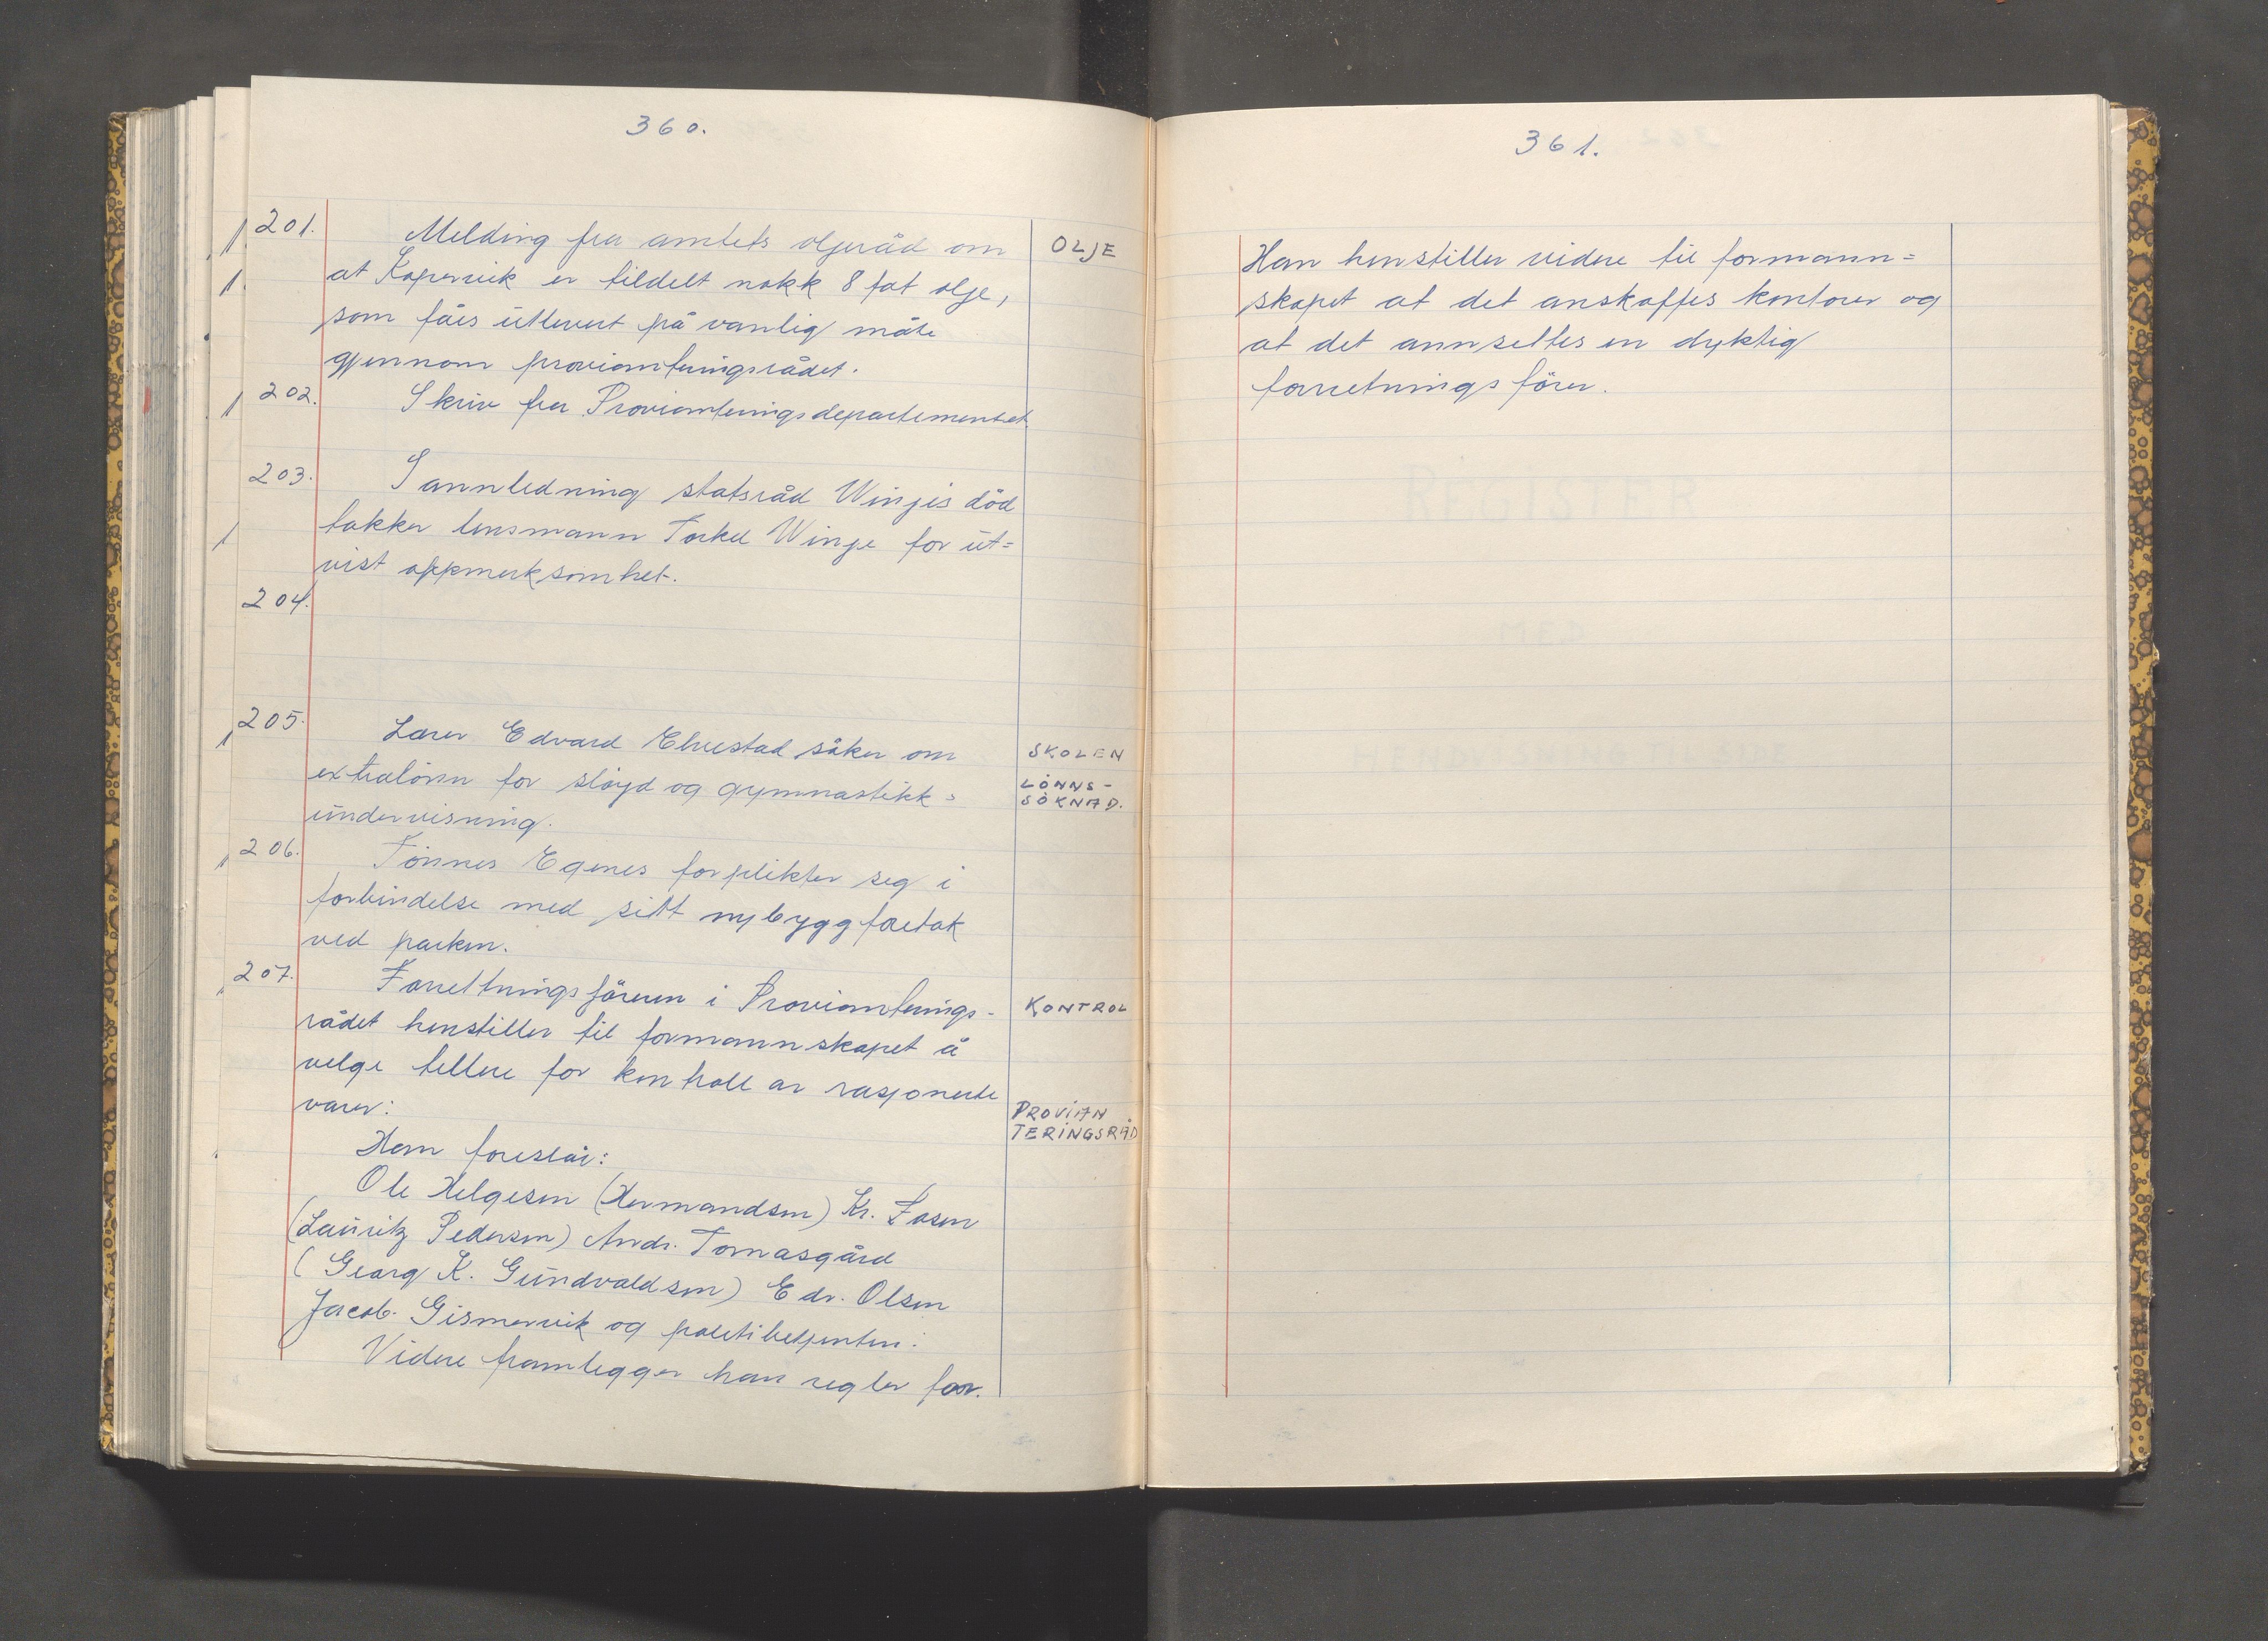 360.
201. Melding fra amtets oljeråd om OLJE
at Kopervik er tildelt nokk 8 fat olje,
som fåes utlevert på vanlig måte
gjennom provianteringsrådet.
202. Skriv fra Provianteringsdepartementet.
203. I annledning statsråd Winjes död
takker lensmann Torkel Winje for ut=
vist oppmerksomhet.
204.
205. Lærer Edvard Elvestad söker om SKOLEN
extralönn for slöyd og gymnastikk= LÖNNS-
SÖKNAD.
undervisning.
206. Tönnes Egenes forplikter seg i
forbindelse med sitt nybyggforetak
ved parken.
207. Forrettningsföreren i Provianterings- KONTROL
rådet henstiller til formannskapet å
velge tellere for kontroll av rasjonerte
varer: PROVIAN
TERINGSRÅD
Han foreslår:
Ole Helgesen (Hermandsen) Kr. Fosen
(Lauritz Pedersen) Andr. Tomasgård
(Georg K. Gundvaldsen) Edv. Olsen
Jacob Gismervik og politibetjenten.
Videre framlegger han regler for.
361.
Han henstiller videre til formann=
skapet at det anskaffes kontorer og
at det annsettes en dyktig
forretningsförer.